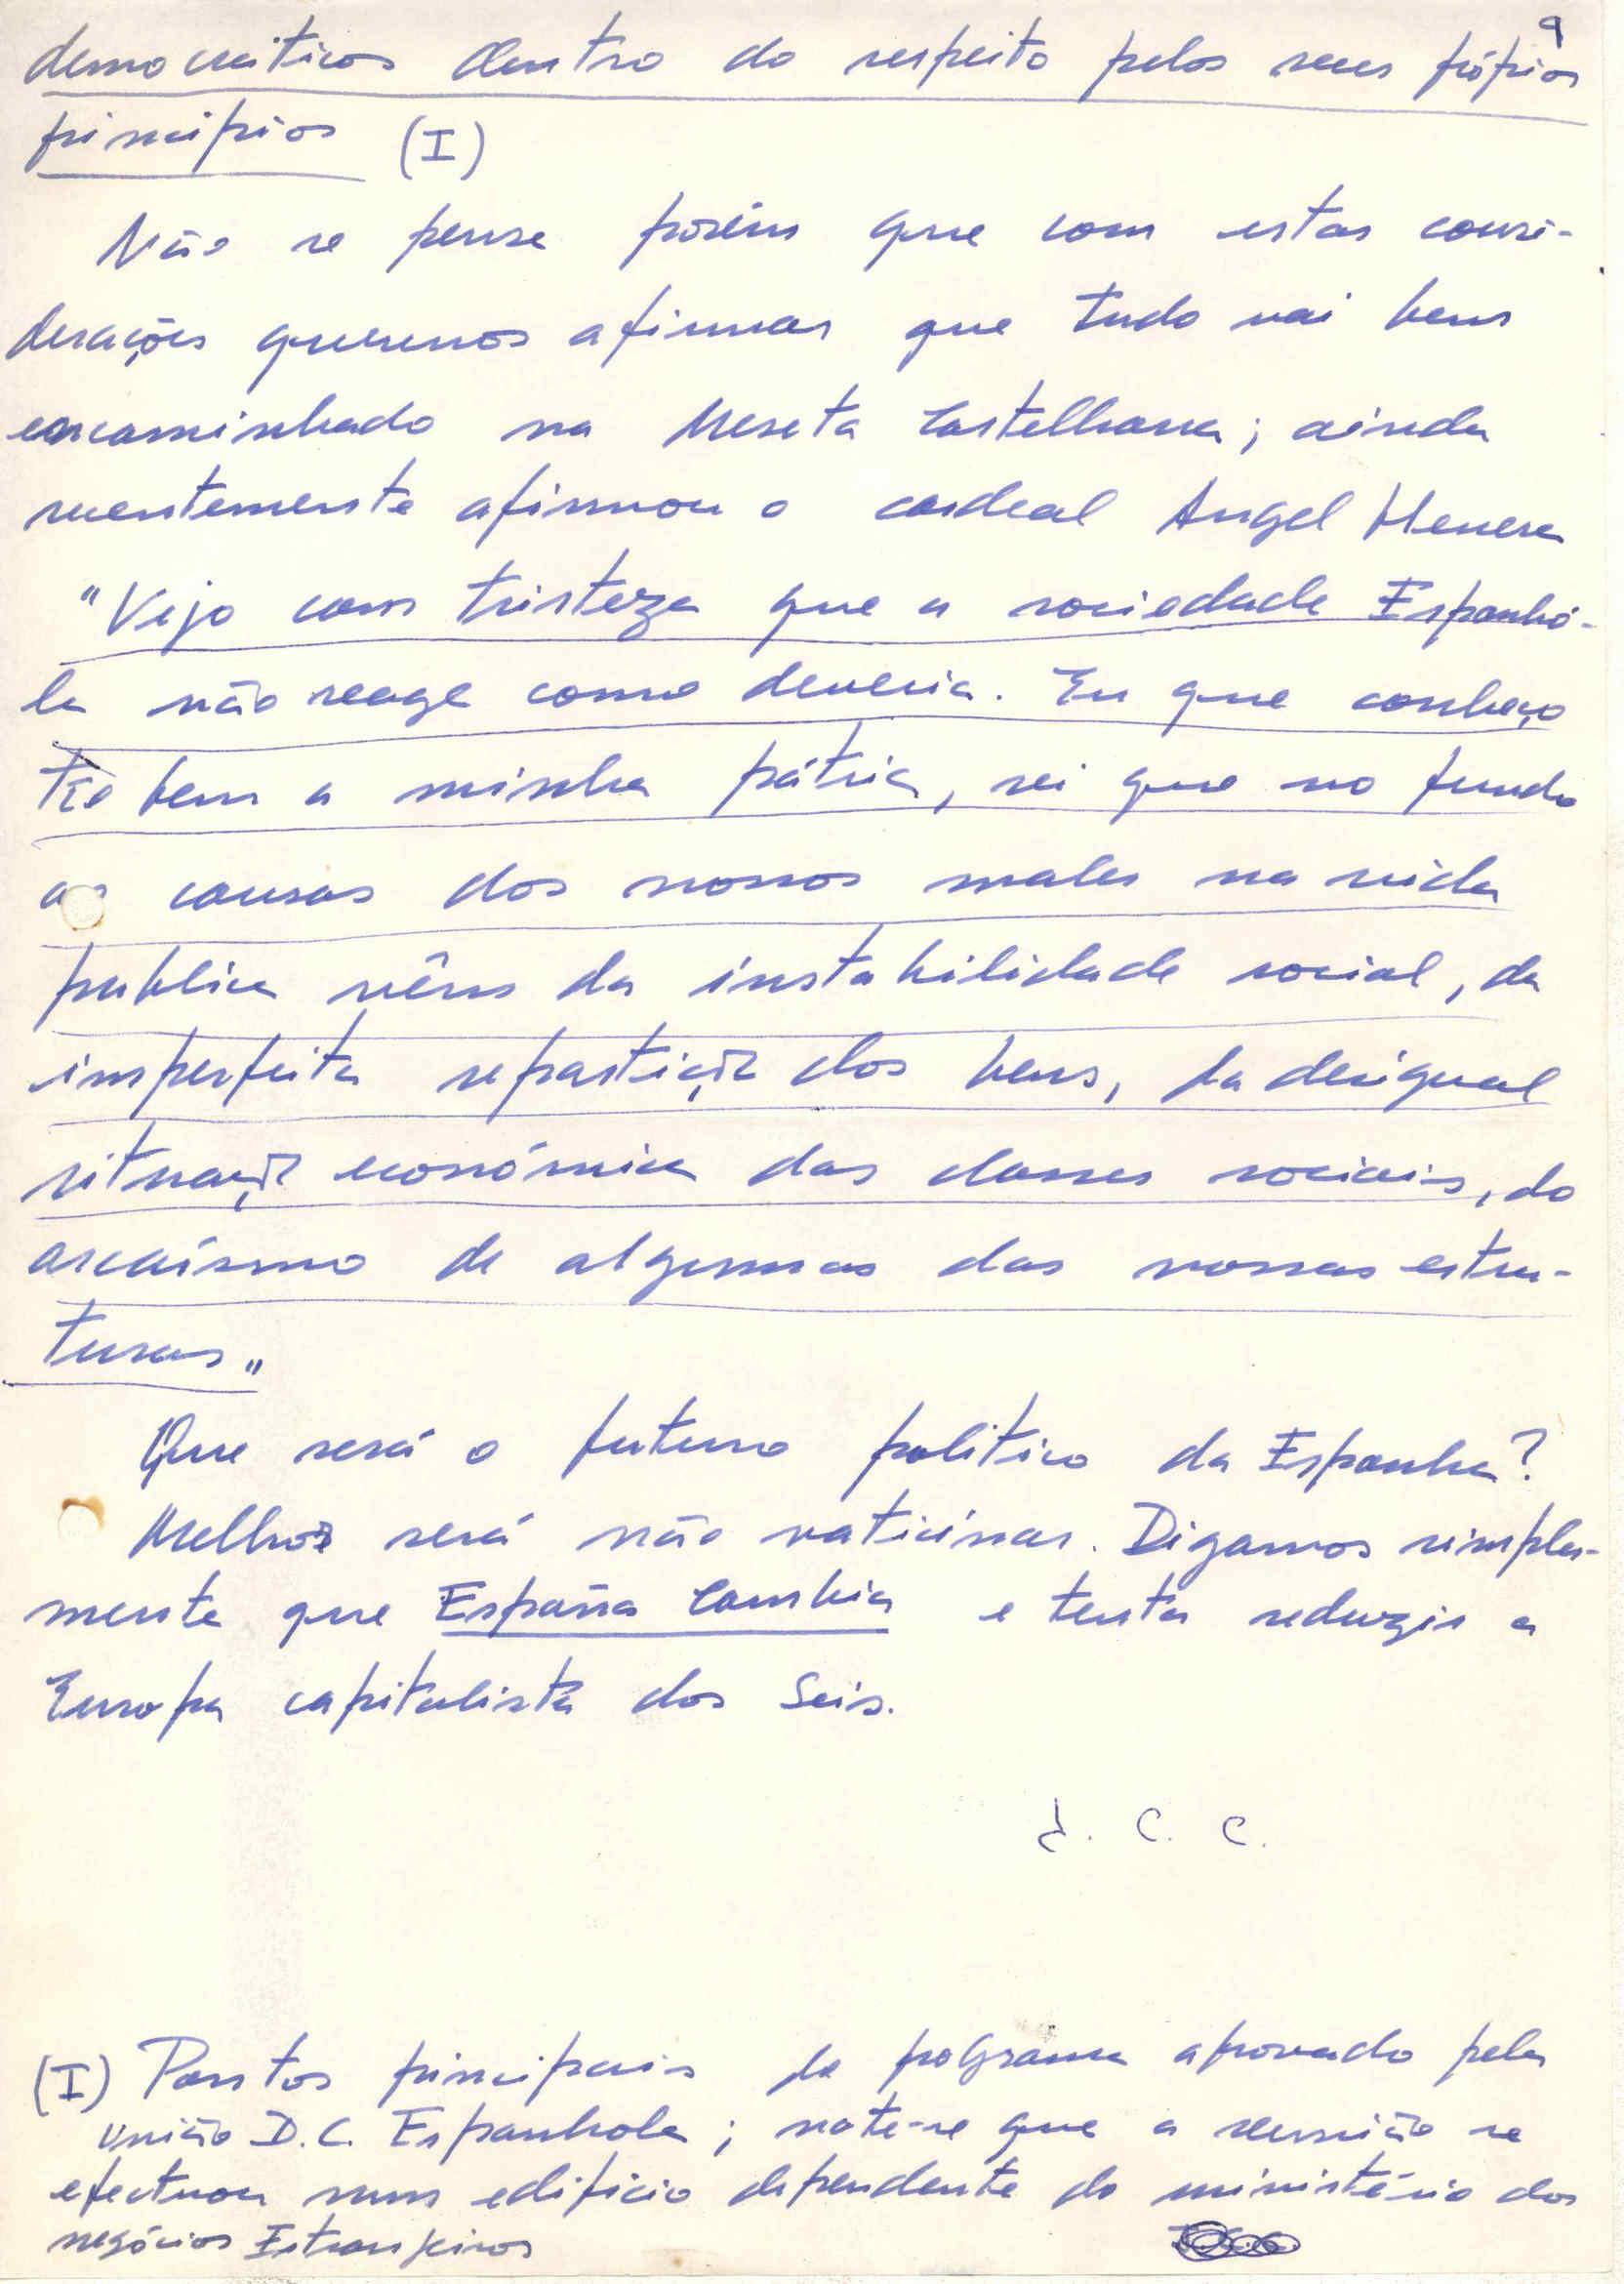 9
democráticos dentro do respeito pelos seus própios
principios (I)
Não se pense porém que com estas consi-
derações queremos afirmar que tudo vai bem
encaminhado na Meseta Castelhana; ainda
recentemente afirmou o cardeal Angel Herrera
"Vejo com tristeza que a sociedade Espanhó-
la não reage como deveria. Eu que conheço
tão bem a minha pátria, sei que no fundo
as causas dos nossos males na vida
publica vêm da instabilidade social, da
imperfeita repartição dos bens, da desigual
situação económica das classes sociais, do
arcaísmo de algumas das nossas estru-
turas"
Que será o futuro politico da Espanha?
Melhor será não vaticinar. Digamos simples-
mente que España Cambia e tenta seduzir a
Europa capitalista dos Seis.
J. C. C.
(I) Pontos principais do programa aprovado pela
União D.C. Espanhola; note-se que a reunião se
efectuou num edificio dependente do ministério dos
negócios Estrangeiros